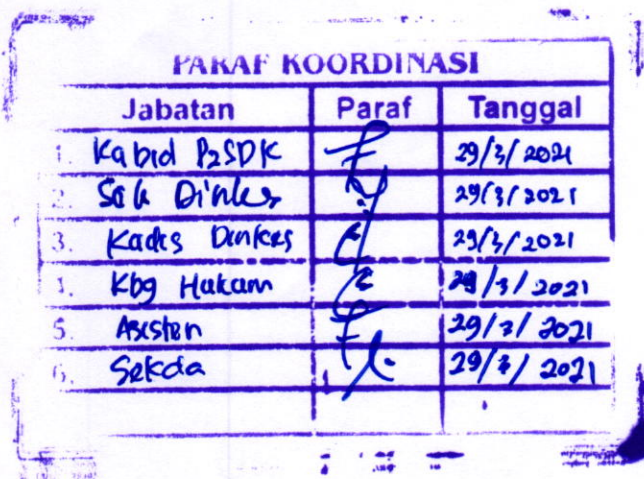 PARAF KOORDINASI
Jabatan Paraf Tanggal
1. Kabid P2SDK 29/3/2021
2. Dinkes 29/3/2021
3. Kadis Dinkes 29/3/2021
4. Kbg Hukum 29/3/2021
5. Asisten 29/3/2021
6. Sekda 29/3/2021